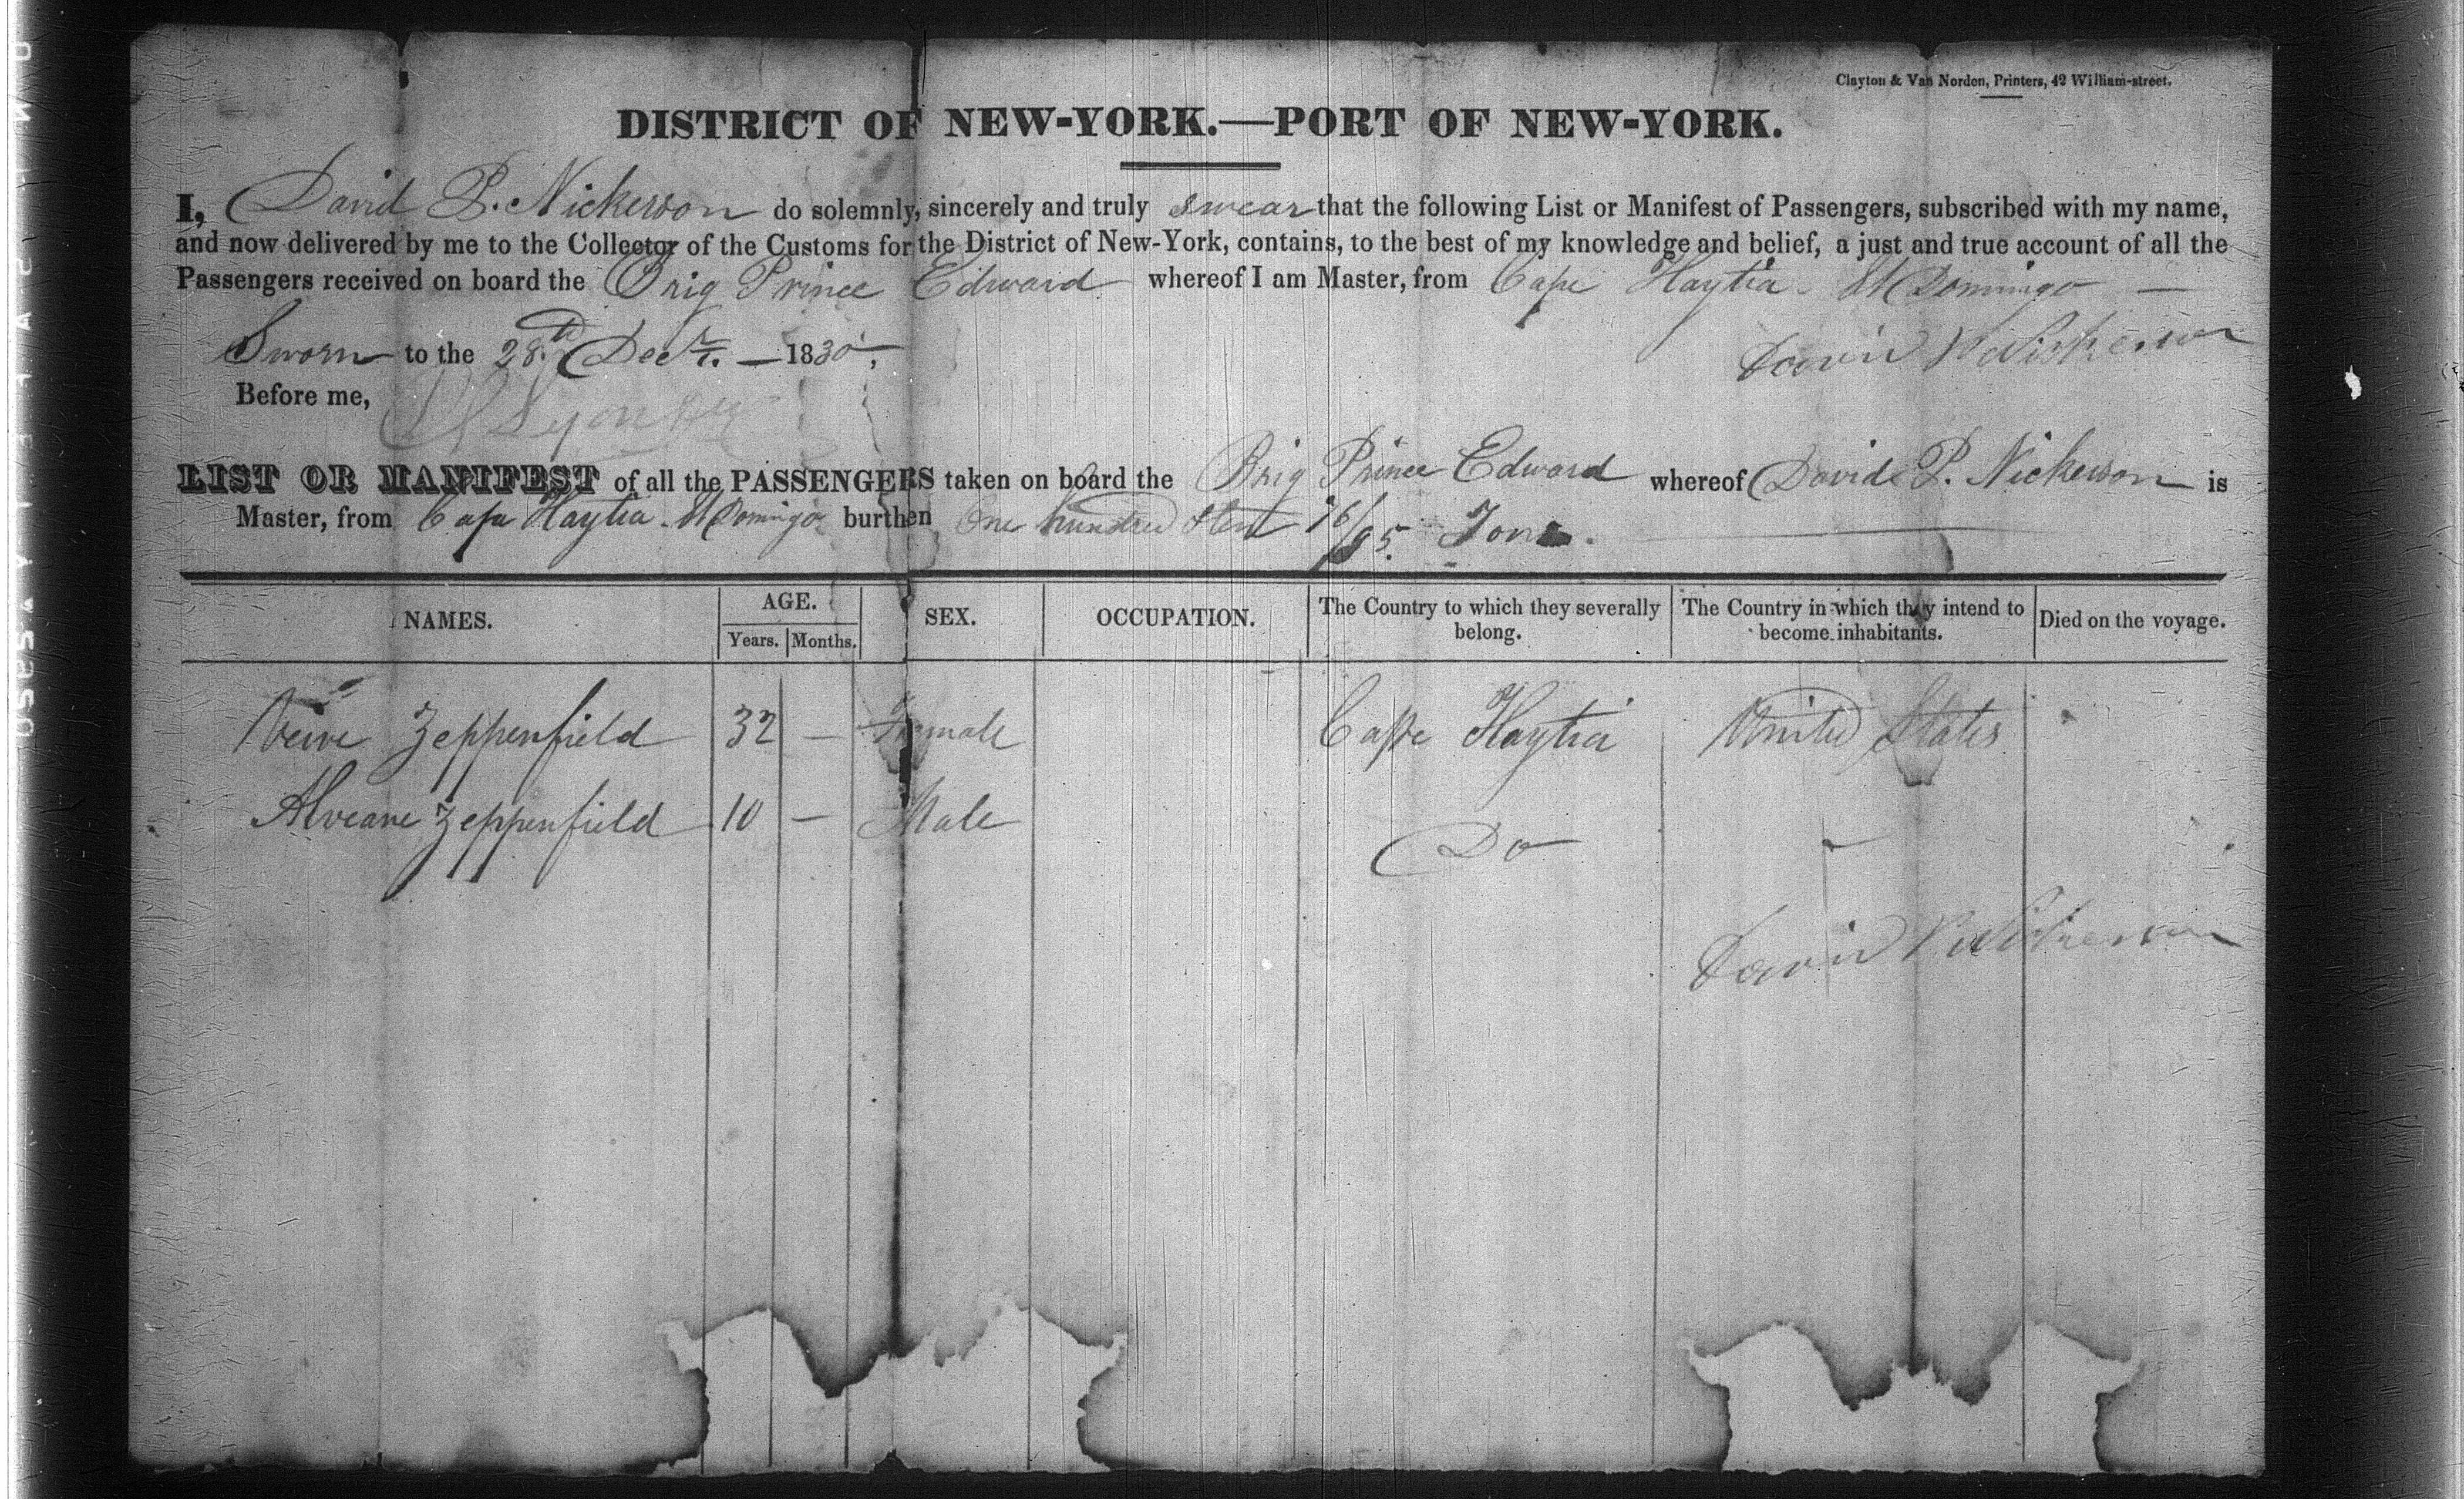 Clayton & Van Norden, Printers, 42 William-street.
DISTRICT OF NEW-YORK.—PORT OF NEW-YORK.
I, David P. Nickerson do solemnly, sincerely and truly swear that the following List or Manifest of Passengers, subscribed with my name,
and now delivered by me to the Collector of the Customs for the District of New-York, contains, to the best of my knowledge and belief, a just and true account of all the
Passengers received on board the Brig Prince Edward whereof I am Master, from Cape Haytia. St Domingo —
Sworn to the 28th Decr. — 1830.
David P Nickerson
Before me,
LIST OR MANIFEST of all the PASSENGERS taken on board the Brig Prince Edward whereof David P. Nickerson is
Master, from Cape Haytia. St Domingo burthen One hundred & ten 16/95 Tons.
NAMES. AGE. Years. Months. SEX. OCCUPATION. The Country to which they severally belong. The Country in which they intend to become inhabitants. Died on the voyage.
Zeppenfield 32 — Female Cape Haytia United States
Zeppenfield 10 — Male Do
David P Nickerson